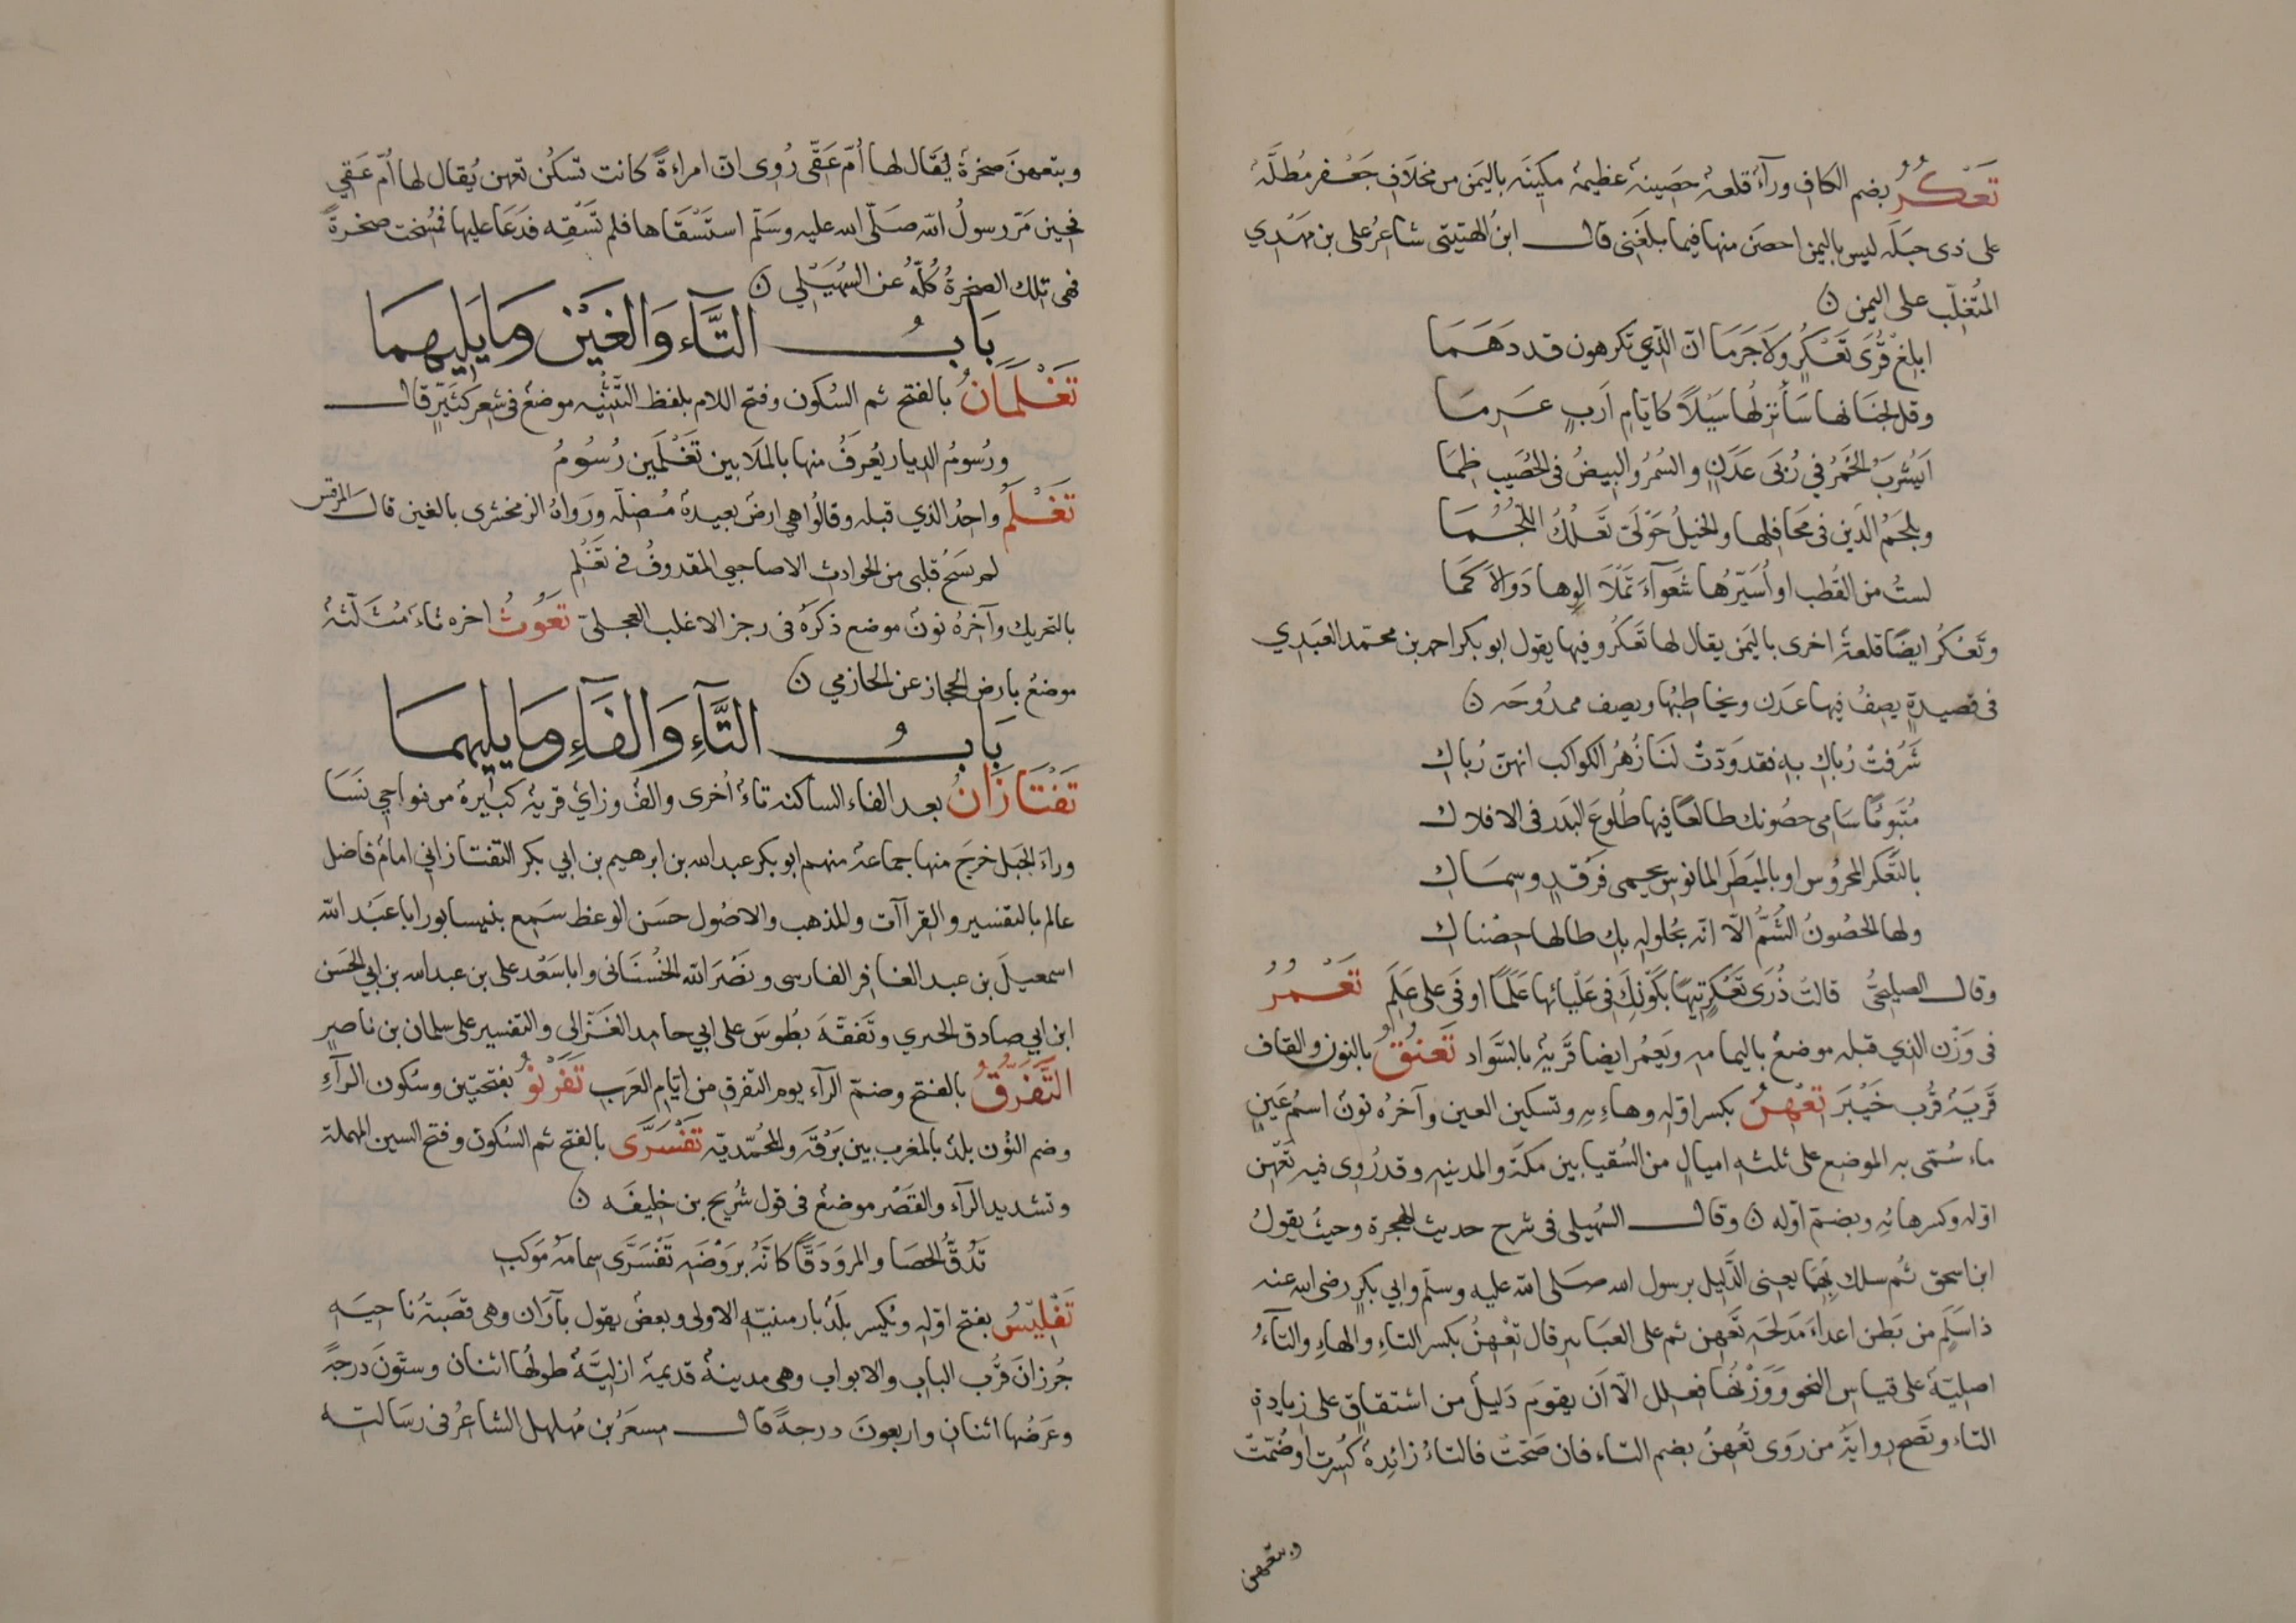 تَعْكُرُ بضم الكاف ورآءٌ قلعة حصينة عظيمة مكينه باليمن من مخلاف جَعْفر مُطلَّة
على ذى جبَلَه ليس باليمن احصَن منها فيما بلغَنى قال ابنُ الهتيتى شاعرُ على بن مَهْدي
المُتغلّب على اليمن ن
ابلغْ قُرَى تَعْكُرٍ ولَا جَرَمَا انّ الّذي تكرهون قد دَهَمَا
وقل لجنَانها سَأُنزلُها سَيْلاً كايّام اَربٍ عَرِمَا
اَيَشْربُ الخَمْرُ في رُبَى عَدَنٍ والسُمْرُ والبيضُ فى الحُصَيب ظِمَا
ويلجَمُ الدّين فى مَحَافلها والخيلُ حَوْلَىَّ تَعْلُكُ اللُّجُمَا
لستُ من القُطب او اُسَيّرُها شَعْوآءَ تَمْلَا الوِهادَ والاَكمَا
وتَعْكُر ايضًا قلعة اخرى باليَمن يقال لها تَعكرُ وفيها يقول ابو بكر احمد بن محمّد العَبْدِي
فى قصيدةٍ يصِفُ فيها عَدَن ويخاطِبُها ويصِف ممدُوحَه ن
شَرُفتْ رُباكِ بهِ فقد وَدّتْ لنَا زُهْرُ الكواكب انهنّ رُباكِ
مُتَبَوِّئًا سَامِى حصُونك طالعًا فيها طُلوعَ البَدر فى الافلاك
بالتَّعكر المحرُوس او بالمَنظَر المانوس يحمى فَرْقَدٍ وسِمَاكِ
ولها الحصُونُ الشُمُّ الّا انّه بحُلولهِ بكِ طالها حِصْناكِ
وقال الصليحيُّ قالتْ ذُرَى تَعْكُرٍ تيهًا بكَوْنكَ فى عَلْيائها عَلَمًا اوفَى على عَلَمِ تَعْمُرُ
فى وَزْن الذي قبله موضعٌ باليمامه ويَعمُر ايضا قَريةٌ بالسَّواد تَعنُقُ بالنون والقاف
قَريَةٌ قُرْب خَيْبَرَ تِعْهِنُ بكسر اوّلهِ وهاءِهِ وتسكين العين وآخرُه نونٌ اسمُ عَينِ
ماء سُمّى به الموضع على ثلثه اميالٍ من السُقيا بين مكّة والمدينه وقد رُوى فيه تَعْهِن
اوّله وكسر هائِهِ وبضمّ اوّله ن وقال السُهيلى فى شرح حديث الهجرة وحيثُ يقولُ
ابن اسحق ثُم سلك بِهِمَا يعنى الدَّليل برسول الله صلى الله عليه وسلّم وابي بكرٍ رضى الله عنه
ذا سَلَمٍ من بَطن اعداءَ مَدلجَه تَعْهِن ثم على العبَابيرِ قال تِعْهِنُ بكسر التاءِ والهاءِ والتآءُ
اصليّة على قياس النحو وَوَزْنُها فعلل الّا اَن يقومَ دَليلٌ من اشتقاقٍ على زيادة
التاء وتَصح روايةُ من رَوى تُعْهِنُ بضم التاء فان صَحّتْ فالتاءُ زائِدةٌ كُسِرت او ضُمّتْ
وبتعهن
وبتعهنَ صخرةٌ يُقَال لها اُمّ عَقّى رُوى انّ امراءةً كانت تسكُن تعهن يُقال لها اُمّ عَقي
فحين مَرّ رسولُ الله صَلّى الله عليه وسَلّم استَسْقَاها فلم تَسْقِه فدَعَا عليها فمُسِخت صخرةً
فهى تلك الصخرةُ كُلُّهُ عن السُهَيْلي ن
بَابُ التَّآء وَالغَيْن ومَا يَلِيهمَا
تَغْلَمَانُ بالفتح ثم السُكون وفتح اللام بلفظ التَّثْنِيه موضعٌ فى شعر كُثَيّرٍ قال
ورُسومُ الديار يُعرَفُ منها بالمَلَا بين تَغْلَمَين رُسُومُ
تَغْلَمُ واحدُ الّذي قبله وقالُوا هي ارضٌ بعيدةٌ مُتصِلَه وروَاهُ الزمخشرى بالغين قال المرقش
لم يشجُ قلبى من الحوادث الا صاحبي المقذوفُ في تَغْلَم
بالتحريك وآخرُه نونٌ موضع ذكرَهُ فى رجز الاغلب العجلىّ تَغوثُ اخره ثاءٌ مُثلّثةٌ
موضعٌ بارض الحجاز عن الحازمي ن
بَابُ التَّآءِ وَالفَآءِ ومَا يليهمَا
تَفْتَازَانُ بعد الفاء الساكنه تاءٌ اُخرى والفٌ وزايٌ قريةٌ كبيرةٌ من نواحي نَسَا
وراءَ الجَبل خرجَ منها جماعةٌ منهم ابو بكر عبد الله بن ابرهيم بن ابي بكر التفتازاني امامٌ فاضل
عالم بالتفسير والقراآت والمذهب والاصُول حسَن الوعظ سَمع بنيسابور ابا عَبْد الله
اسمعيلَ بن عبد الغافر الفارسى ونَصْرَ الله الخُشنَانى وابا سَعْد على بن عبد الله بن ابي الحَسن
ابن ابي صادق الحيري وتَفَقّهَ بطُوسَ على ابي حامِد الغَزّالى والتفسير على سلمان بن ناصرٍ
التَّفَرُّقُ بالفتح وضمّ الرآء يوم التفرقِ من ايّام العَربِ تَفَرْنُو بفتحتَين وسُكون الرآءِ
وضم النُون بلدٌ بالمغرب بين بَرْقَه والمحُمّديّه تَفْسَرَّى بالفتح ثم السُكون وفتح السين المهملة
وتشديد الرآء والقَصْر موضعٌ فى قول شُرَيح بن خليفَه ن
تَدُقُّ الحصَا والمروَ دَقًّا كانّهُ بروضَه تَفْسَرَّى سِمامَةُ مَوكبِ
تَفْلِيسُ بفتح اوّلهِ ويُكسر بلَدٌ بارمنيّه الاولى وبعضٌ يقول بآرَان وهى قصَبةُ ناحيَه
جُرزانَ قُرْب الباب والابواب وهى مدينةٌ قديمةٌ ازليَّةٌ طولُها اثنان وستّونَ درجةً
وعَرضُها اثنانِ واربعونَ درجةً قال مسعَرُ بن مُهلهل الشاعرُ فى رسَالته